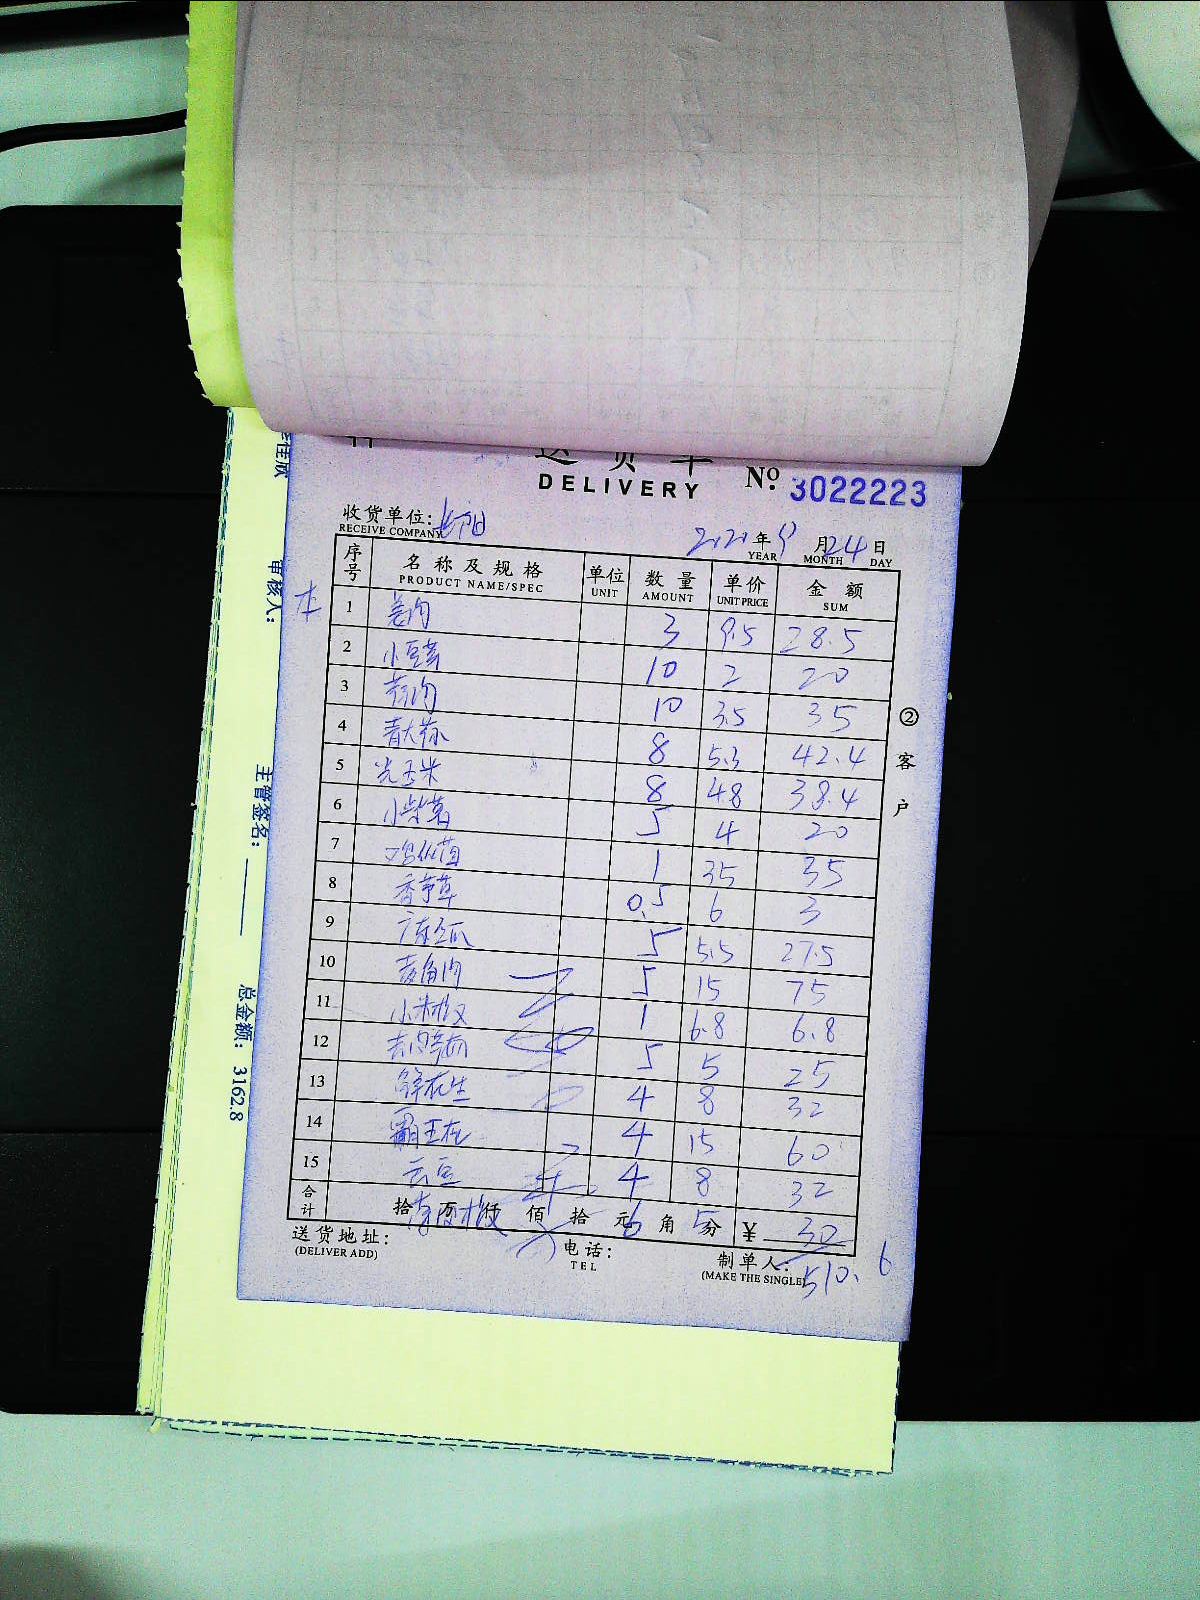 送货单
DELIVERY
No. 3022223
收货单位:
RECEIVE COMPANY
2020年9月24日
YEAR MONTH DAY
序号 名称及规格 单位 数量 单价 金额
PRODUCT NAME/SPEC UNIT AMOUNT UNIT PRICE SUM
1 姜肉 3 9.5 28.5
2 小豆芽 10 2 20
3 10 3.5 35
4 8 5.3 42.4
5 光玉米 8 4.8 38.4
6 小紫薯 5 4 20
7 1 35 35
8 香茅草 0.5 6 3
9 5 5.5 27.5
10 菱角肉 5 15 75
11 小米椒 1 6.8 6.8
12 5 5 25
13 鲜花生 4 8 32
14 霸王花 4 15 60
15 云豆 4 8 32
合计 拾 万 仟 佰 拾 元 6 角 5 分 ¥ 30
510.6
送货地址:
(DELIVER ADD)
电话:
TEL
制单人:
(MAKE THE SINGLE)
②客户
审核人:
主管签名:
总金额: 3162.8